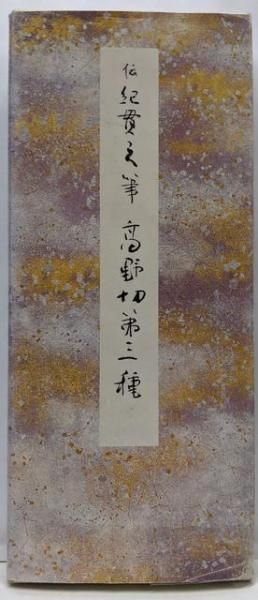 伝紀貫之筆高野切第三種